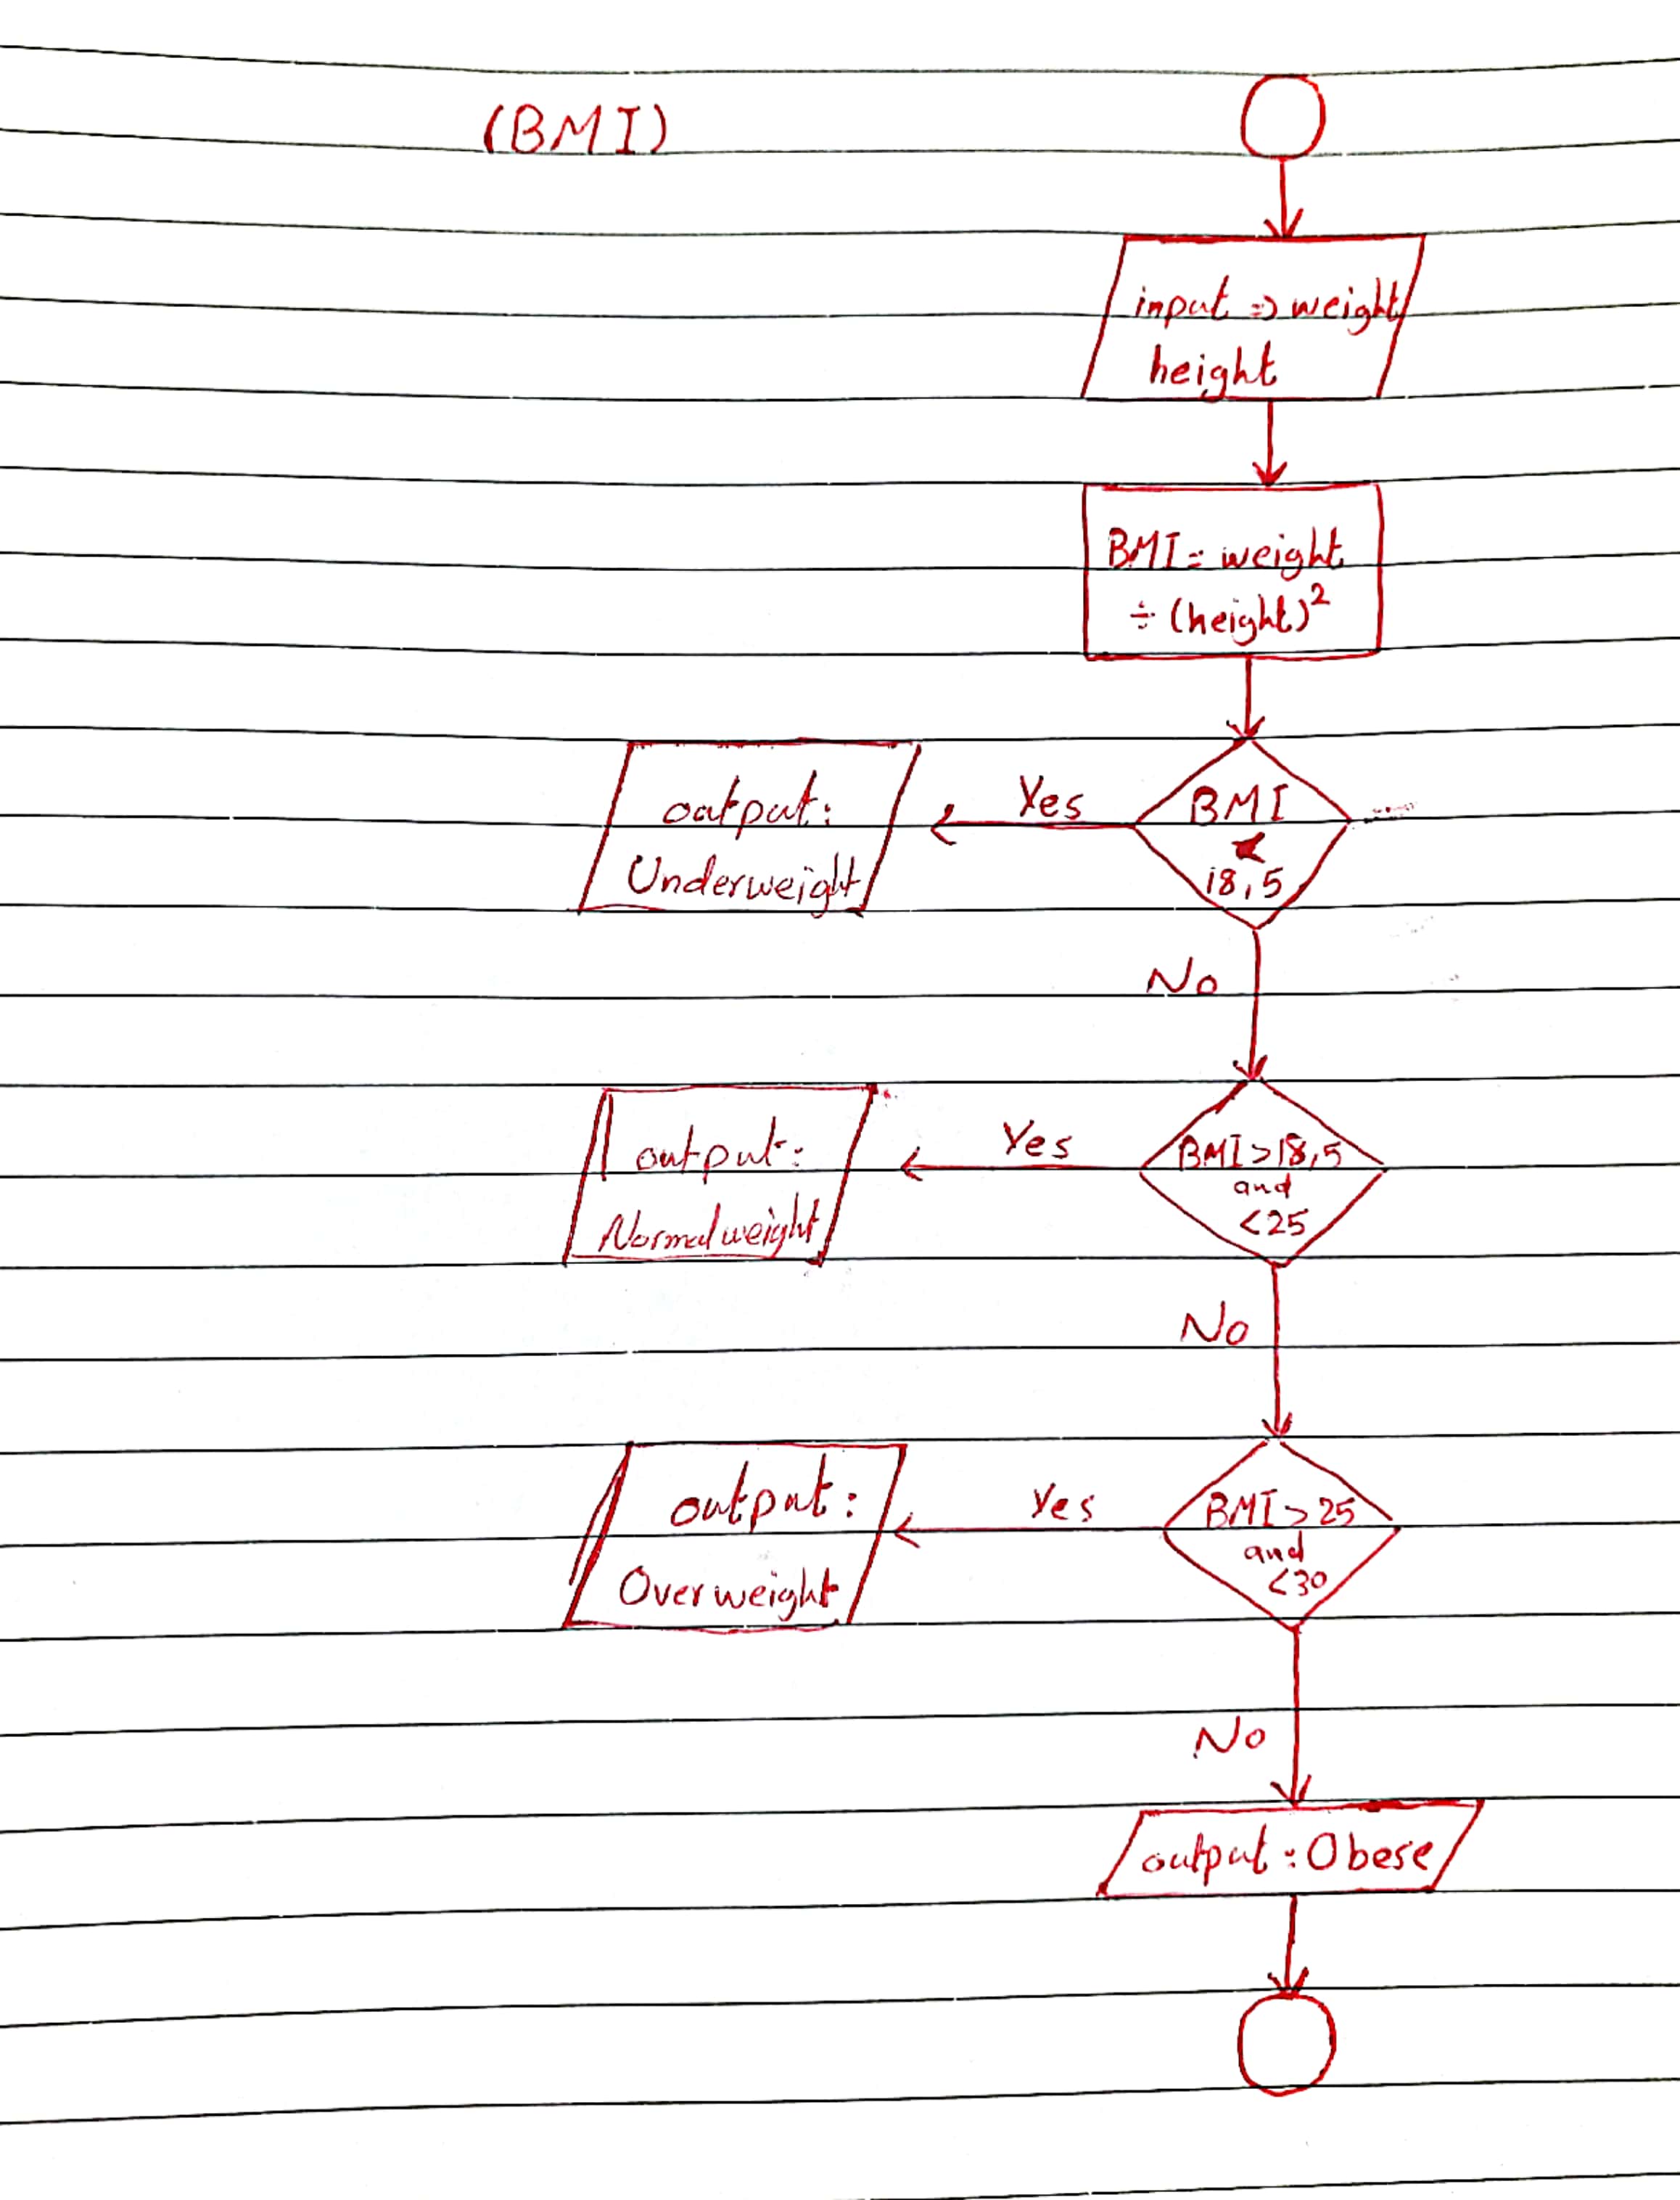 (BMI)
input => weight
height
BMI = weight
÷ (height)²
BMI
<
18,5
Yes
output:
Underweight
No
BMI>18,5
and
<25
Yes
output:
Normal weight
No
BMI>25
and
<30
Yes
output:
Over weight
No
output : Obese